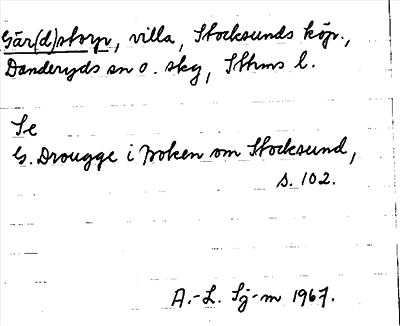 Gär(d)storp, villa, Stocksunds köp.,
Danderyds sn o. skg, Sthms l.
Se
G. Drougge i boken om Stocksund,
s. 102.
A.-L. Sj-m 1967.